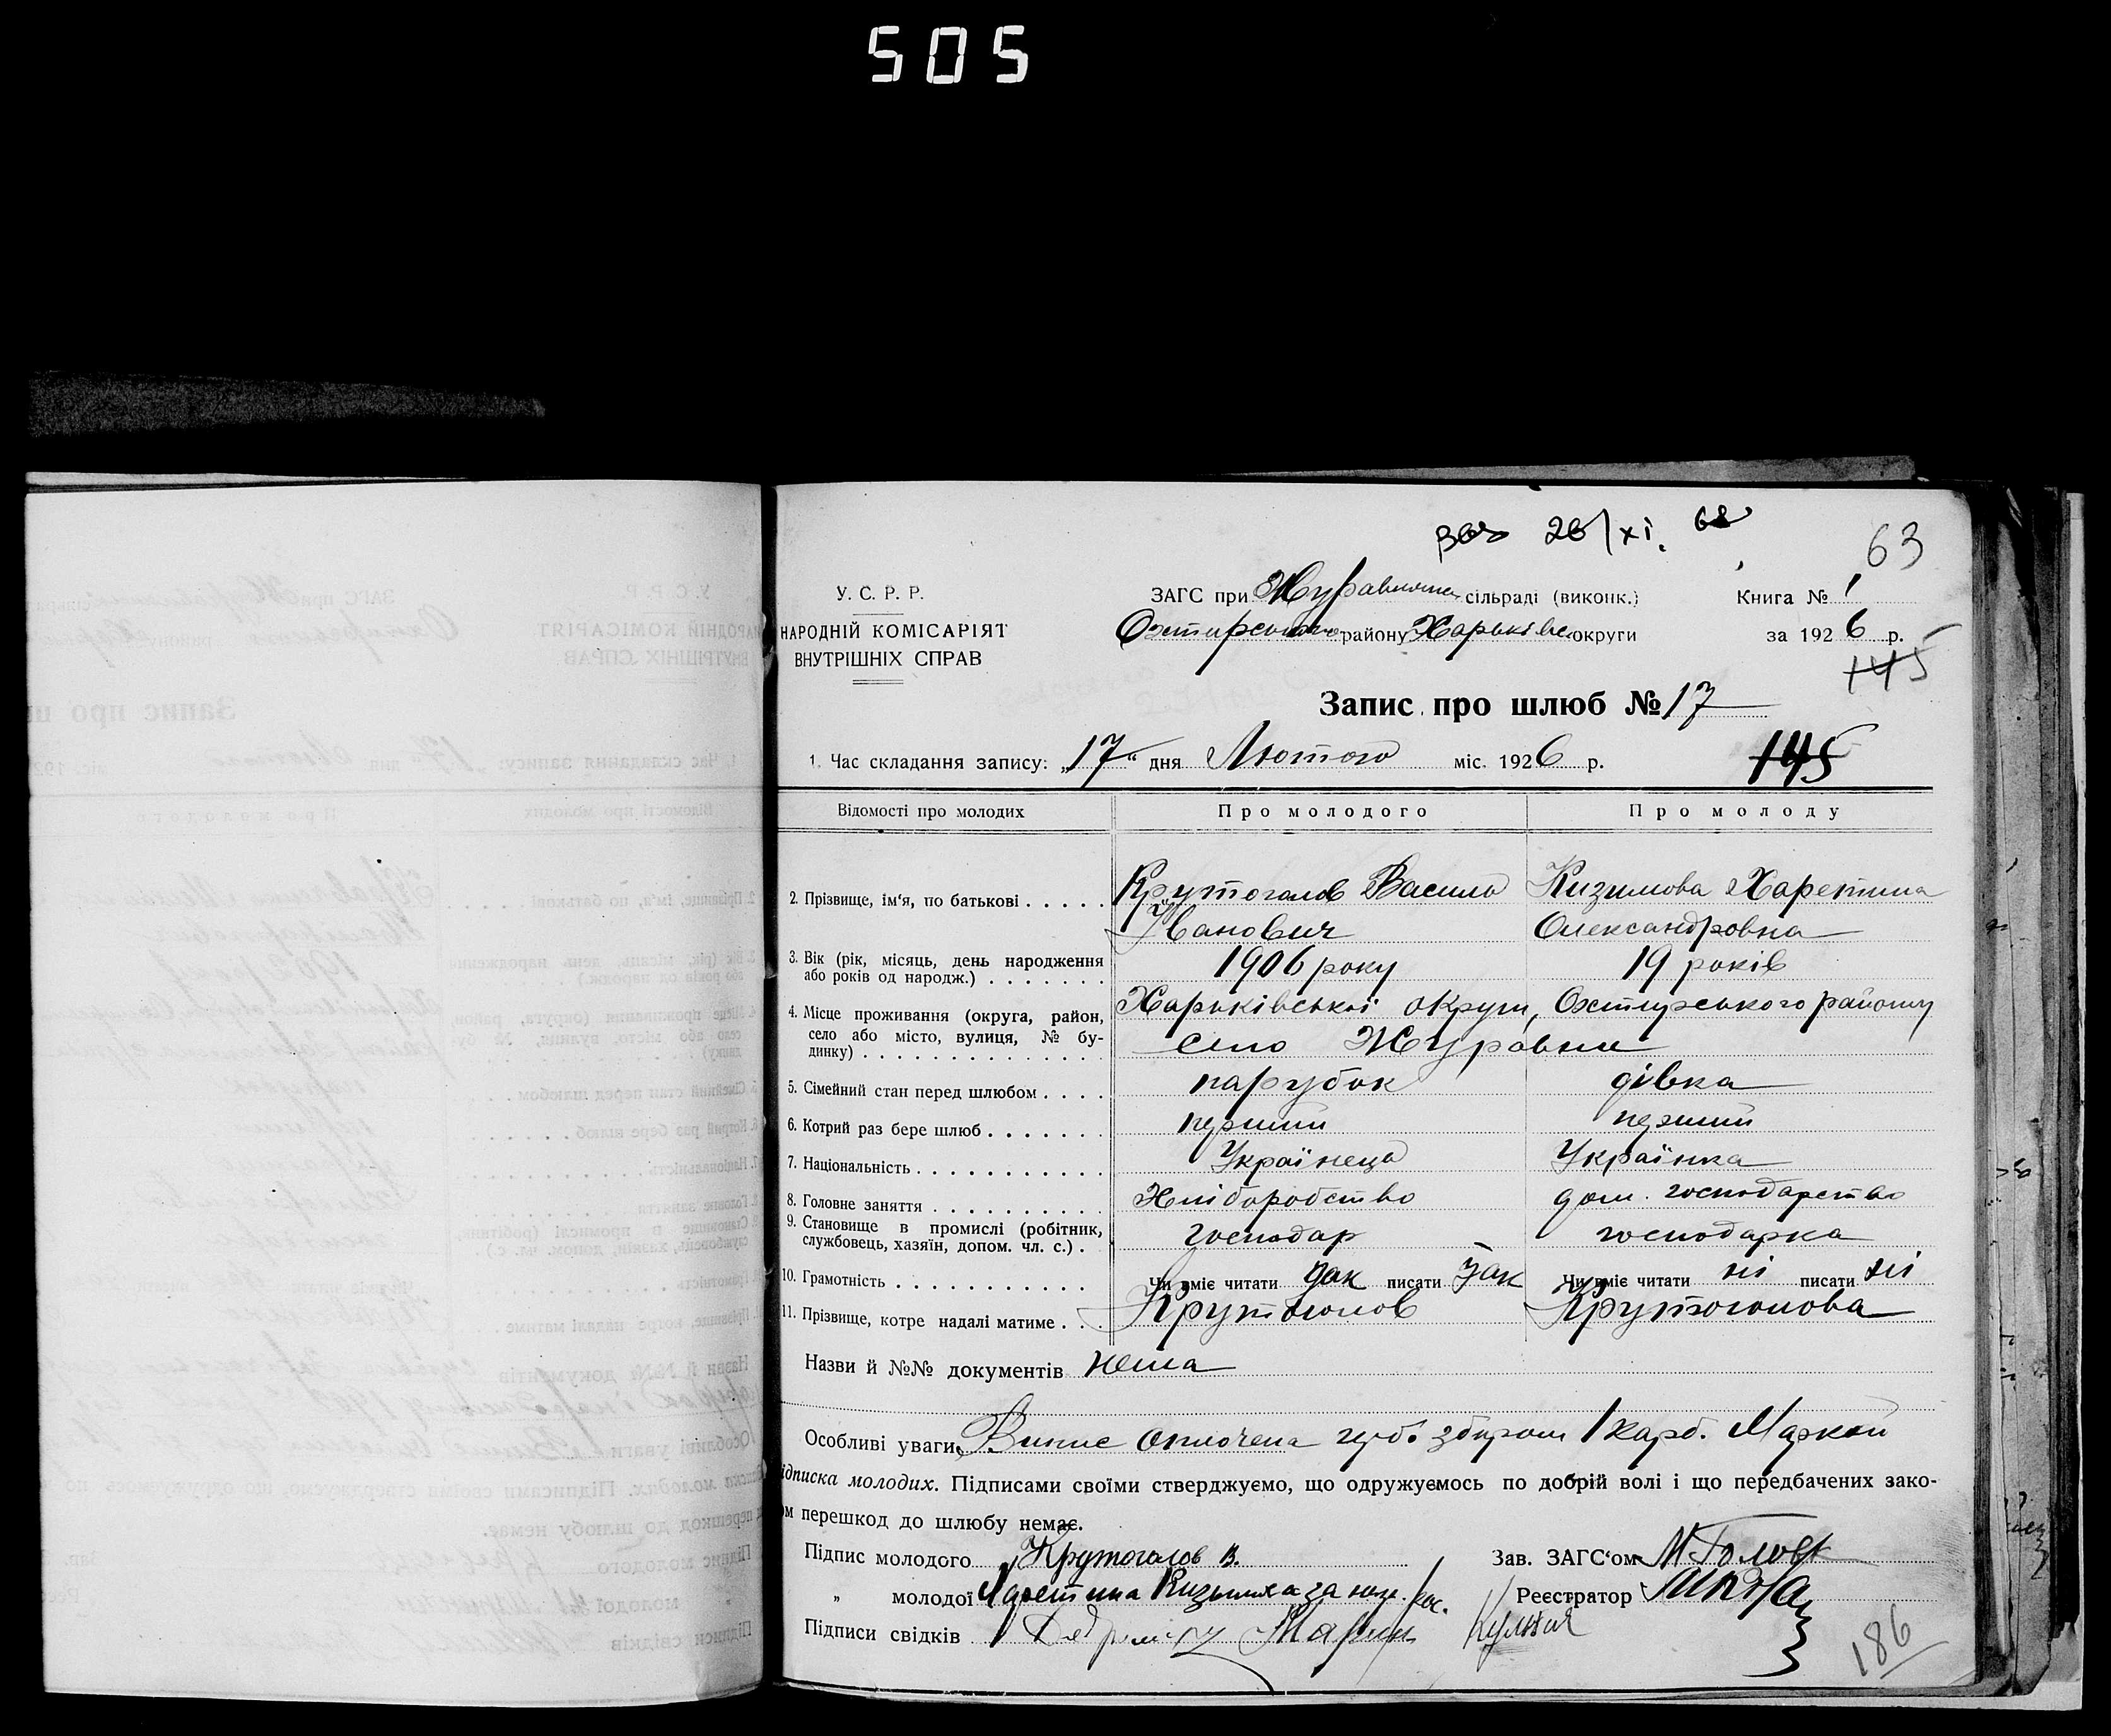 505
26/XI. 68
63
У. С. Р. Р.
НАРОДНІЙ КОМІСАРІЯТ
ВНУТРІШНІХ СПРАВ
ЗАГС при сільраді (виконк.)
Охтирського району Харьківс. округи
Книга № 1
за 1926 р.
145
Запис про шлюб № 17
1. Час складання запису: „17“ дня Лютого міс. 1926 р.
145
Відомості про молодих Про молодого Про молоду
2. Прізвище, ім‘я, по батькові . . . . . Крутоголов Василь Кизимова Харетина
Іванович Олександровна
3. Вік (рік, місяць, день народження або років од народж.) . . . . . . . 1906 року 19 років
4. Місце проживання (округа, район, Харьківської округи, Охтирського району
село або місто, вулиця, № бу-
динку) . . . . . . . . . . . . . . село Журавни
5. Сімейний стан перед шлюбом . . . . парубок дівка
6. Котрий раз бере шлюб . . . . . . . перший перший
7. Національність . . . . . . . . . . . Українець Українка
8. Головне заняття . . . . . . . . . . Хліборобство дом. господарство
9. Становище в промислі (робітник,
службовець, хазяїн, допом. чл. с.) . господар господарка
10. Грамотність . . . . . . . . . . . Чи вміє читати так писати так Чи вміє читати ні писати ні
11. Прізвище, котре надалі матиме . . . Крутоголов Крутоголова
Назви й №№ документів нема
Особливі уваги: Випис оплочена герб. збором 1 карб. Маркой
ідписка молодих. Підписами своїми стверджуємо, що одружуємось по добрій волі і що передбачених зако-
ом перешкод до шлюбу немає.
Підпис молодого Крутоголов В. Зав. ЗАГС‘ом
„ молодої Харетина за Реєстратор
Підписи свідків
186